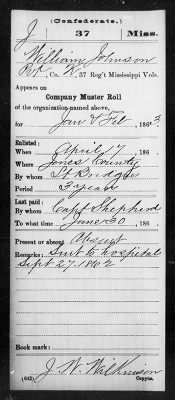 (Confederate.)
J 37 Miss.
William Johnson
Pvt, Co. K, 37 Reg't Mississippi Vols.
Appears on
Company Muster Roll
of the organization named above,
for Jan & Feb, 186 3.
Enlisted:
When April 7, 186
Where Jones County
By whom
Period 3 years
Last paid:
By whom Capt Shepherd
To what time June 30, 186
Present or absent Absent
Remarks: Sent to hospital
Sept 27, 1862
Book mark:
J. W. Wilkinson
(642) Copyist.